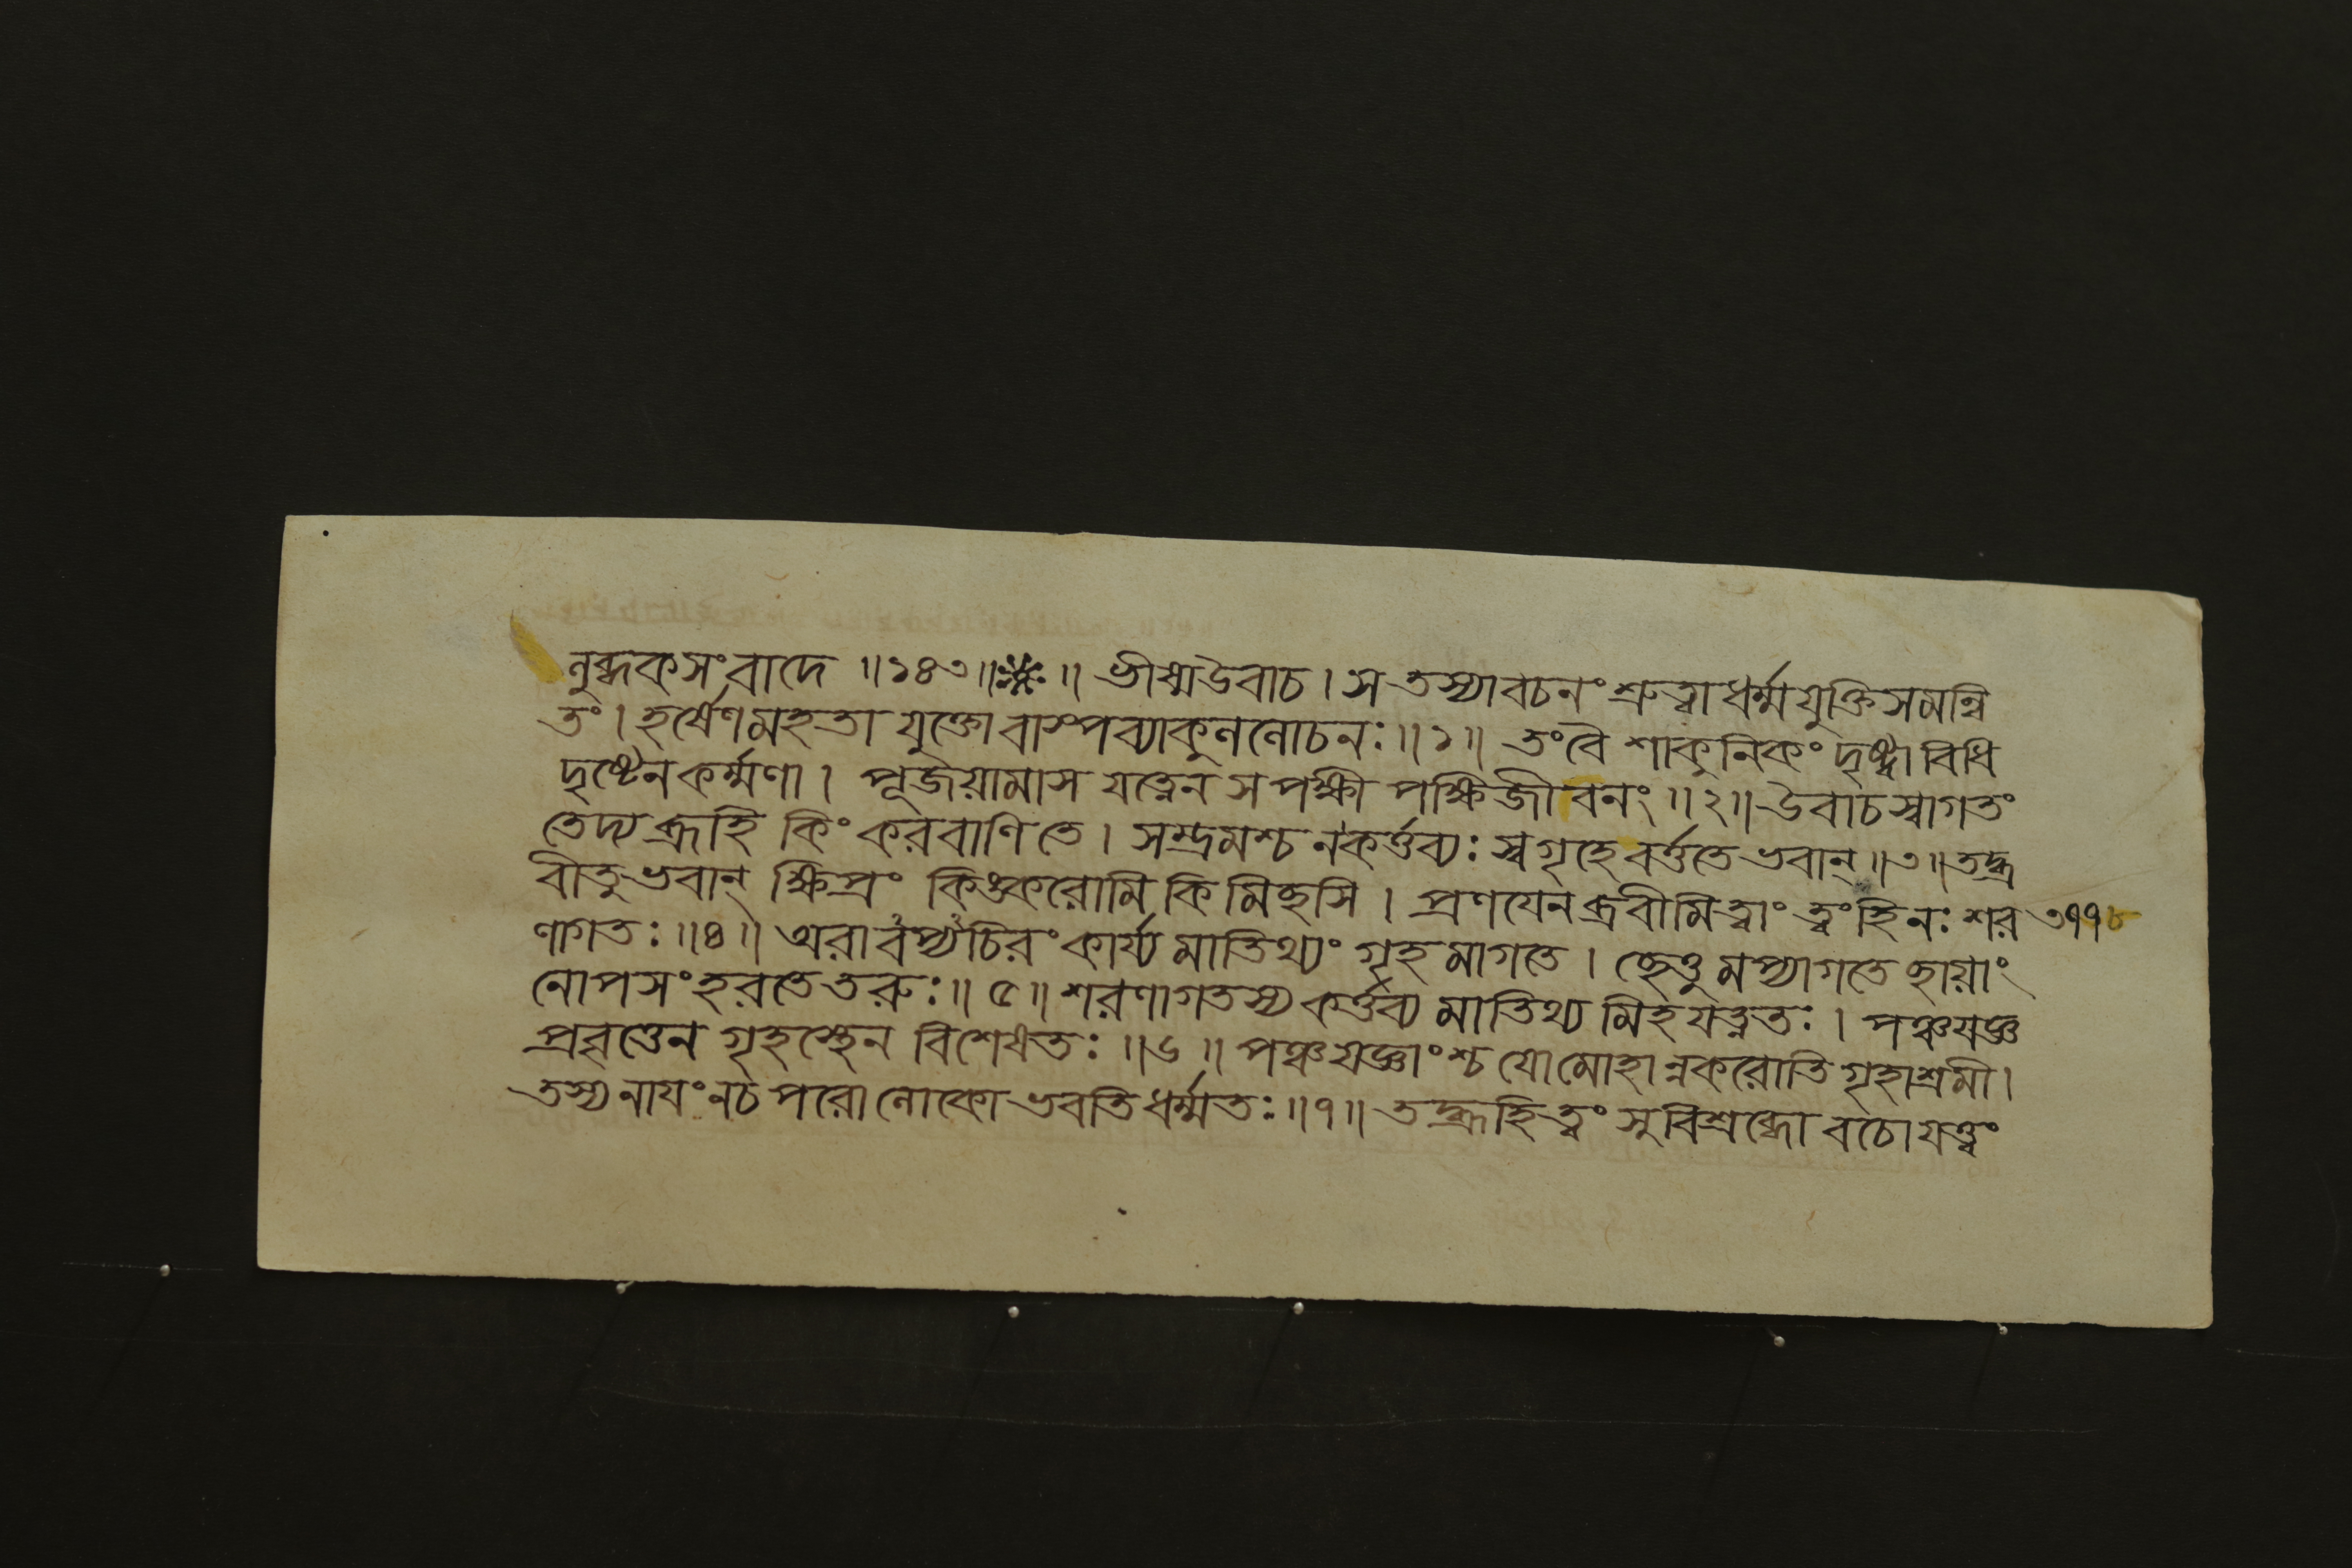 লুব্ধকসংবাদে ॥১৪৩॥ ※ ॥ ভীষ্মউবাচ । স তস্যাবচনং শ্রুত্বা ধর্ম্মযুক্তিসমন্বি
তং । হর্ষেণমহতা যুক্তো বাস্পব্যাকুললোচনঃ ॥১॥ তংবৈ শাকুনিকং দৃষ্ট্বা বিধি
দৃষ্টেনকর্ম্মণা । পূজয়ামাস যত্নেন স পক্ষী পক্ষিজীবনং ॥২॥ উবাচস্বাগতং
তেদ্য ব্রূহি কিং করবাণিতে । সম্ভ্রমশ্চ নকর্ত্তব্যঃ স্বগৃহে বর্ত্ততে ভবান্ ॥৩॥ তদ্ব্র
বীতু ভবান্ ক্ষিপ্রং কিঙ্করোমি কিমিছসি । প্রণযেনব্রবীমিত্বাং ত্বংহিনঃ শর ৩৭৭৮
ণাগতঃ ॥৪॥ অরাবপ্যচিরং কার্য্য মাতিথ্যং গৃহমাগতে । ছেত্তুমপ্যাগতে ছায়াং
নোপসংহরতে তরুঃ ॥ ৫ ॥ শরণাগতস্য কর্ত্তব্য মাতিথ্য মিহযত্নতঃ । পঞ্চযজ্ঞ
প্রবৃত্তেন গৃহস্থেন বিশেষতঃ ॥৬॥ পঞ্চযজ্ঞাংশ্চ যো মোহান্নকরোতি গৃহাশ্রমী ।
তস্য নাযং নচ পরো লোকো ভবতি ধর্ম্মতঃ ॥৭॥ তদ্ব্রূহি ত্বং সুবিশ্রব্ধো বচো যত্ত্বং